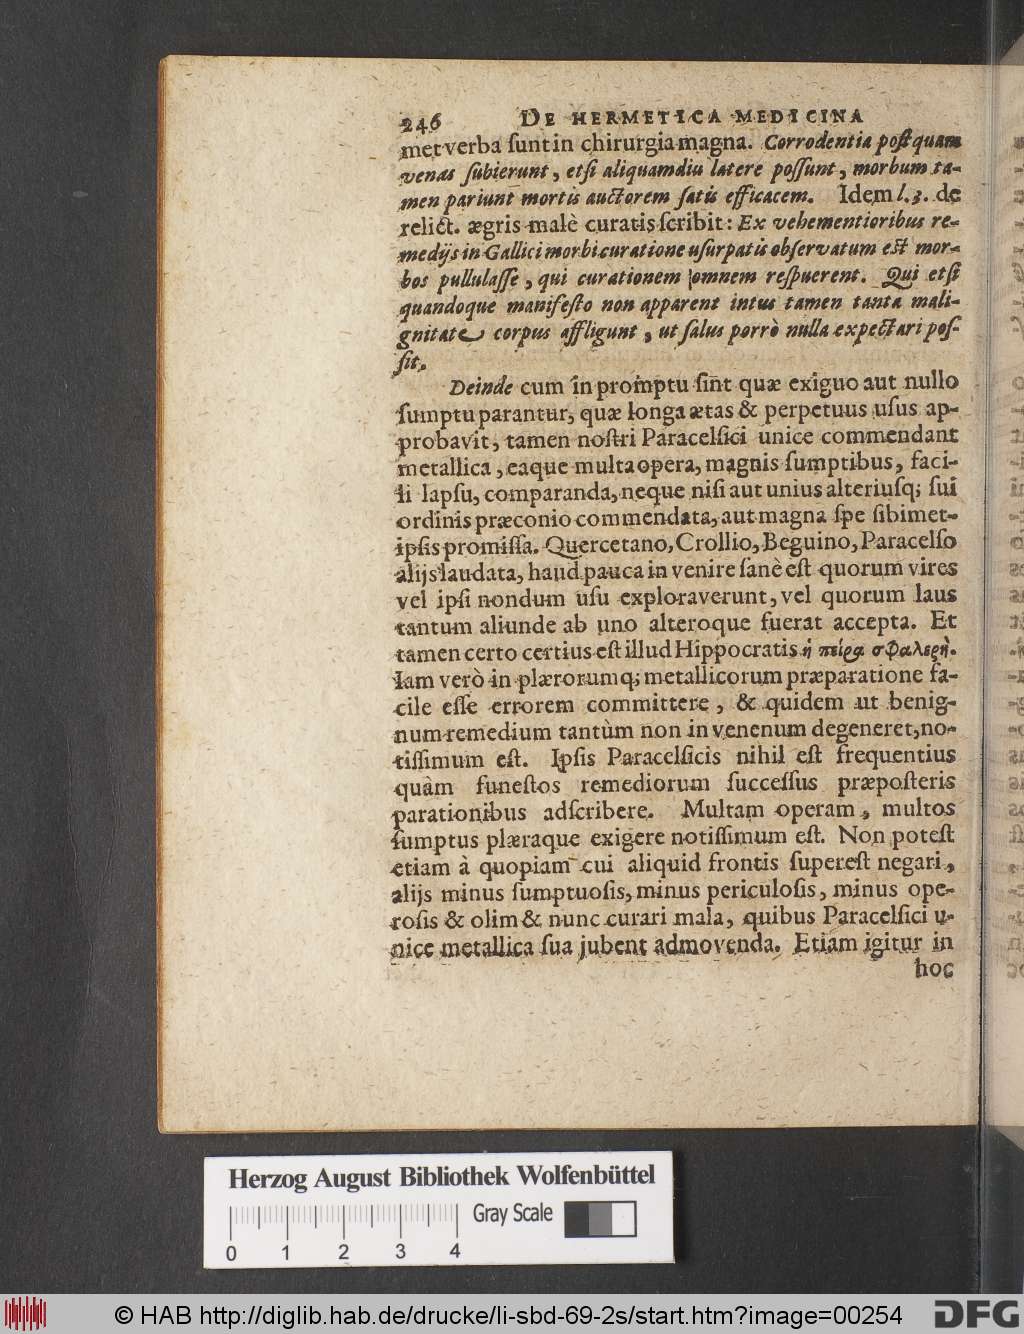 246 DE HERMETICA MEDICINA
met verba ſunt in chirurgia magna. Corrodentia poſtquam
venas ſubierunt, etſi aliquamdiu latere poſſunt, morbum ta-
men pariunt mortis auctorem ſatis efficacem. Idem l.3. de
relict. ægris malè curatis ſcribit: Ex vehementioribus re-
medijs in Gallici morbi curatione uſurpatis obſervatum eſt mor-
bos pullulaſſe, qui curationem omnem reſpuerent. Qui etſi
quandoque manifeſto non apparent intus tamen tanta mali-
gnitate corpus affligunt, ut ſalus porrò nulla expectari poſ-
ſit.
Deinde cum in promptu ſint quæ exiguo aut nullo
ſumptu parantur, quæ longa ætas & perpetuus uſus ap-
probavit, tamen noſtri Paracelſici unice commendant
metallica, eaque multa opera, magnis ſumptibus, faci-
li lapſu, comparanda, neque niſi aut unius alteriuſq; ſui
ordinis præconio commendata, aut magna ſpe ſibimet-
ipſis promiſſa. Quercetano, Crollio, Beguino, Paracelſo
alijs laudata, haud pauca in venire ſanè eſt quorum vires
vel ipſi nondum uſu exploraverunt, vel quorum laus
tantum aliunde ab uno alteroque fuerat accepta. Et
tamen certo certius eſt illud Hippocratis ἡ πεῖρα σφαλερὴ.
Iam verò in plærorumq; metallicorum præparatione fa-
cile eſſe errorem committere, & quidem ut benig-
num remedium tantùm non in venenum degeneret, no-
tiſſimum eſt. Ipſis Paracelſicis nihil eſt frequentius
quàm funeſtos remediorum ſucceſſus præpoſteris
parationibus adſcribere. Multam operam, multos
ſumptus plæraque exigere notiſſimum eſt. Non poteſt
etiam à quopiam cui aliquid frontis ſupereſt negari,
alijs minus ſumptuoſis, minus periculoſis, minus ope-
roſis & olim & nunc curari mala, quibus Paracelſici u-
nice metallica ſua jubent admovenda. Etiam igitur in
hoc
Herzog August Bibliothek Wolfenbüttel
Gray Scale
0 1 2 3 4
© HAB http://diglib.hab.de/drucke/li-sbd-69-2s/start.htm?image=00254
DFG